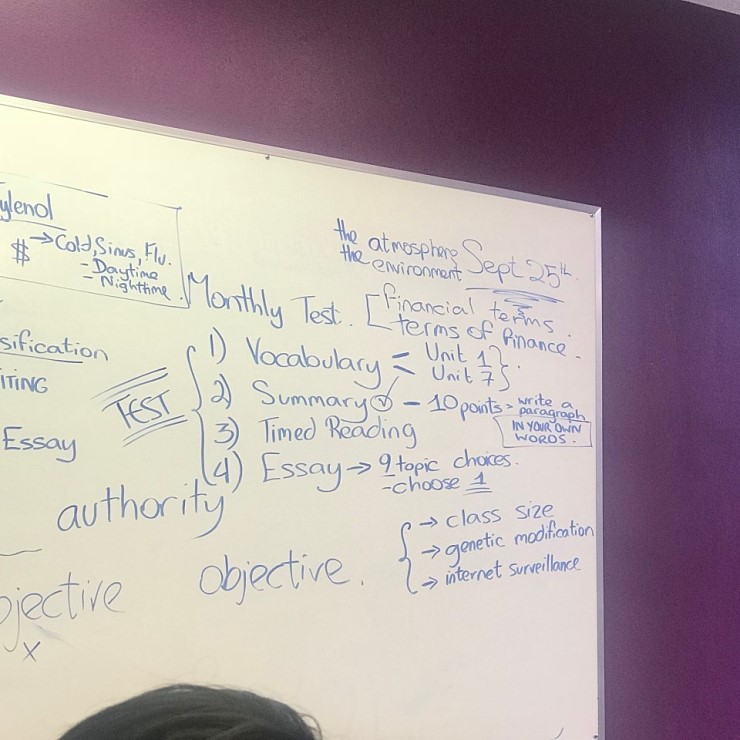 ylenol
$ → Cold, Sinus, Flu.
- Daytime
- Nighttime
sification
ITING
Essay
the atmosphere
the environment
Sept 25th.
Monthly Test. [financial terms.
terms of finance.
TEST
1) Vocabulary < Unit 1
Unit 7 }.
2) Summary ✓ - 10 points > write a
paragraph
IN YOUR OWN
WORDS.
3) Timed Reading
4) Essay → 9 topic choices.
- choose 1
authority
→ class size
→ genetic modification
→ internet surveillance
bjective
x
objective.